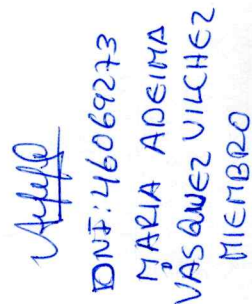 DNI: 46069273
MARIA ADELMA
VASQUEZ VILCHEZ
MIEMBRO